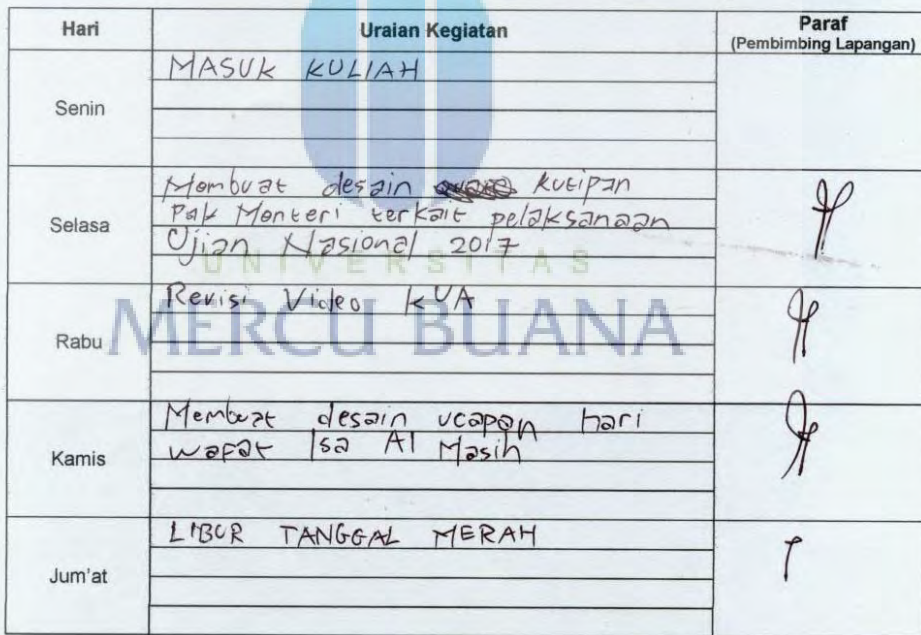 Hari Uraian Kegiatan Paraf
(Pembimbing Lapangan)
Senin
MASUK KULIAH
Selasa
Membuat desain kutipan
Pak Menteri terkait pelaksanaan
Ujian Nasional 2017
UNIVERSITAS
MERCU BUANA
Rabu
Revisi Video KUA
Kamis
Membuat desain ucapan hari
wafat Isa Al Masih
Jum'at
LIBUR TANGGAL MERAH